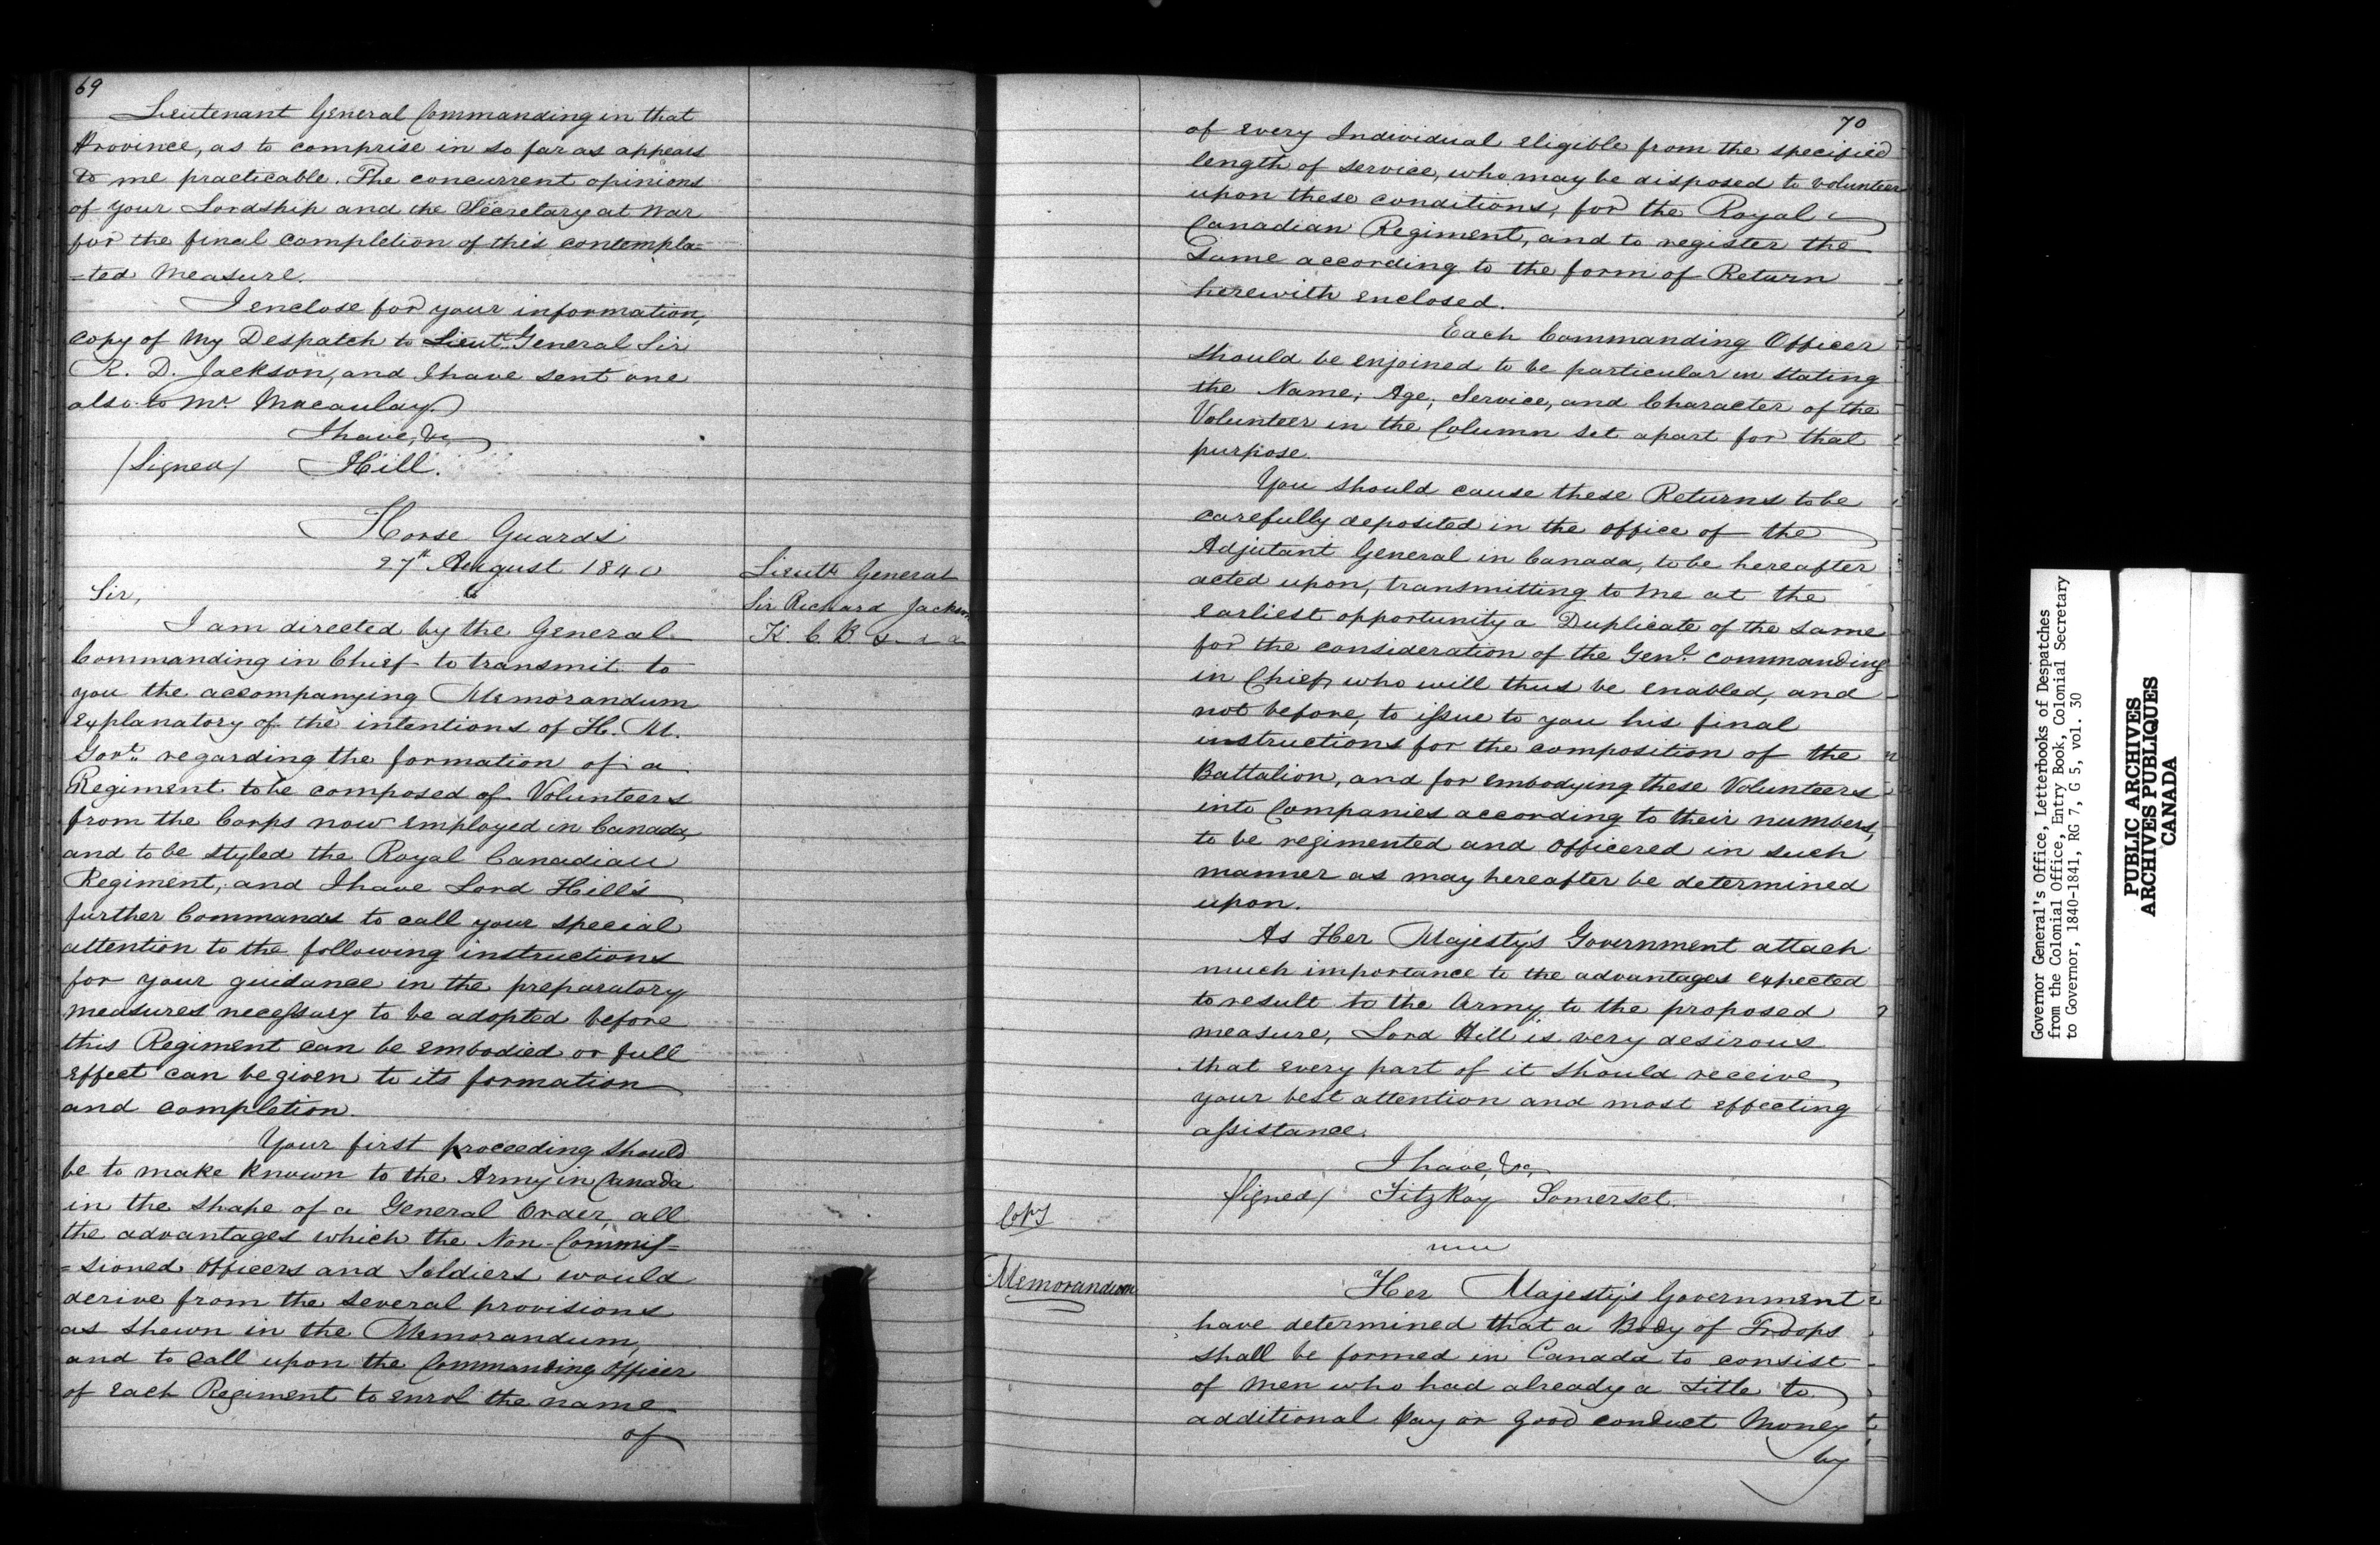 69
Lieutenant General Commanding in that
Province, as to comprise in so far as appears
to me practicable. The concurrent opinions
of your Lordship and the Secretary at War
for the final completion of this contempla=
=ted Measure.
I enclose for your information,
copy of My Despatch to Lieut. General Sir
R. D. Jackson, and I have sent one
also to Mr. Macaulay.
I have, &c,
/Signed/ Hill.
Horse Guards
27th August 1840
Lieutt General
Sir Richard Jackson
K. C. B &
Sir,
I am directed by the General
Commanding in Chief to transmit to
you the accompanying Memorandum
explanatory of the intentions of H. M.
Govt. regarding the formation of a
Regiment to be composed of Volunteers
from the Corps now employed in Canada,
and to be styled the Royal Canadian
Regiment, and I have Lord Hill's
further Commands to call your special
attention to the following instructions
for your guidance in the preparatory
measures necessary to be adopted before
this Regiment can be embodied or full
effect can be given to its formation
and completion.
Your first proceeding should
be to make known to the Army in Canada
in the shape of a General Order, all
the advantages which the Non-Commis=
=sioned Officers and Soldiers would
derive from the several provisions
as shewn in the Memorandum,
and to call upon the Commanding Officer
of each Regiment to enrol the name
of
70
of every Individual eligible from the specified
length of service, who may be disposed to volunteer
upon these conditions, for the Royal
Canadian Regiment, and to register the
Same according to the form of Return
herewith enclosed.
Each Commanding Officer
should be enjoined to be particular in stating
the Name, Age, Service, and Character of the
Volunteer in the Column set apart for that
purpose.
You should cause these Returns to be
carefully deposited in the office of the
Adjutant General in Canada, to be hereafter
acted upon, transmitting to me at the
earliest opportunity a Duplicate of the same
for the consideration of the Genl. commanding
in Chief, who will thus be enabled, and
not before, to issue to you his final
instructions for the composition of the
Battalion, and for embodying these Volunteers
into Companies according to their numbers,
to be regimented and officered in such
manner as may hereafter be determined
upon.
As Her Majesty's Government attach
much importance to the advantages expected
to result to the Army to the proposed
measure, Lord Hill is very desirous
that every part of it should receive
your best attention and most effecting
assistance.
I have, &c,
/signed/ FitzRoy Somerset.
Copy
Memorandum
Her Majesty's Government
have determined that a Body of Troops
shall be formed in Canada to consist
of men who had already a title to
additional Pay or Good conduct Money
by
Governor General's Office, Letterbooks of Despatches
from the Colonial Office, Entry Book, Colonial Secretary
to Governor, 1840-1841, RG 7, G 5, vol. 30
PUBLIC ARCHIVES
ARCHIVES PUBLIQUES
CANADA